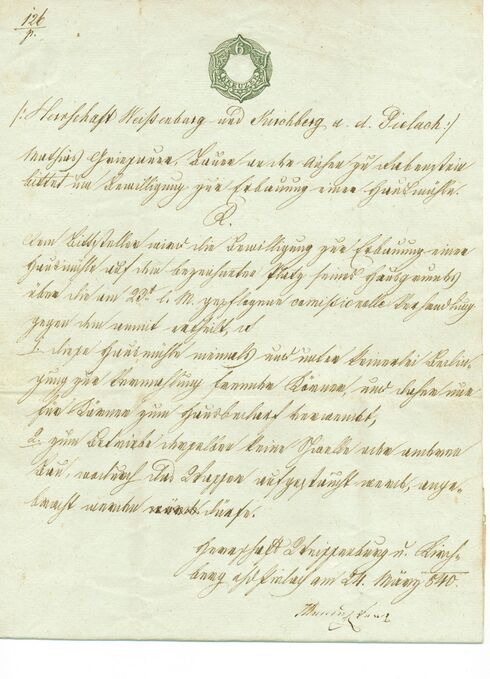 126
p.
6
KREUZER
/: Herrschaft Weissenburg und Kirchberg a. d. Pielach :/
Mathias Griessauer, Bauer an der Aichen zu Rabenstein
bittet um Bewilligung zur Erbauung einer Hausmühle.
D.
Dem Bittsteller wird die Bewilligung zur Erbauung einer
Hausmühle auf dem bezeichneten Platz seines Hausgrundes
über die am 23t. l. M. gepflogene comissionelle Verhandlung
gegen dem ertheilt,
1. diese Hausmühle niemals und unter keinerlei Bedin-
gung zur Vermahlung fremder Körner, und daher nur
der Körner zum Hausbedarf verwendet,
2. zum Betriebe derselben keine Schwelle oder anderer
Bau, wodurch das Wasser aufgestaucht werde, ange-
bracht werden dürfe.
Herrschaft Weissenburg u. Kirch-
berg a/d Pielach am 24. März 840.